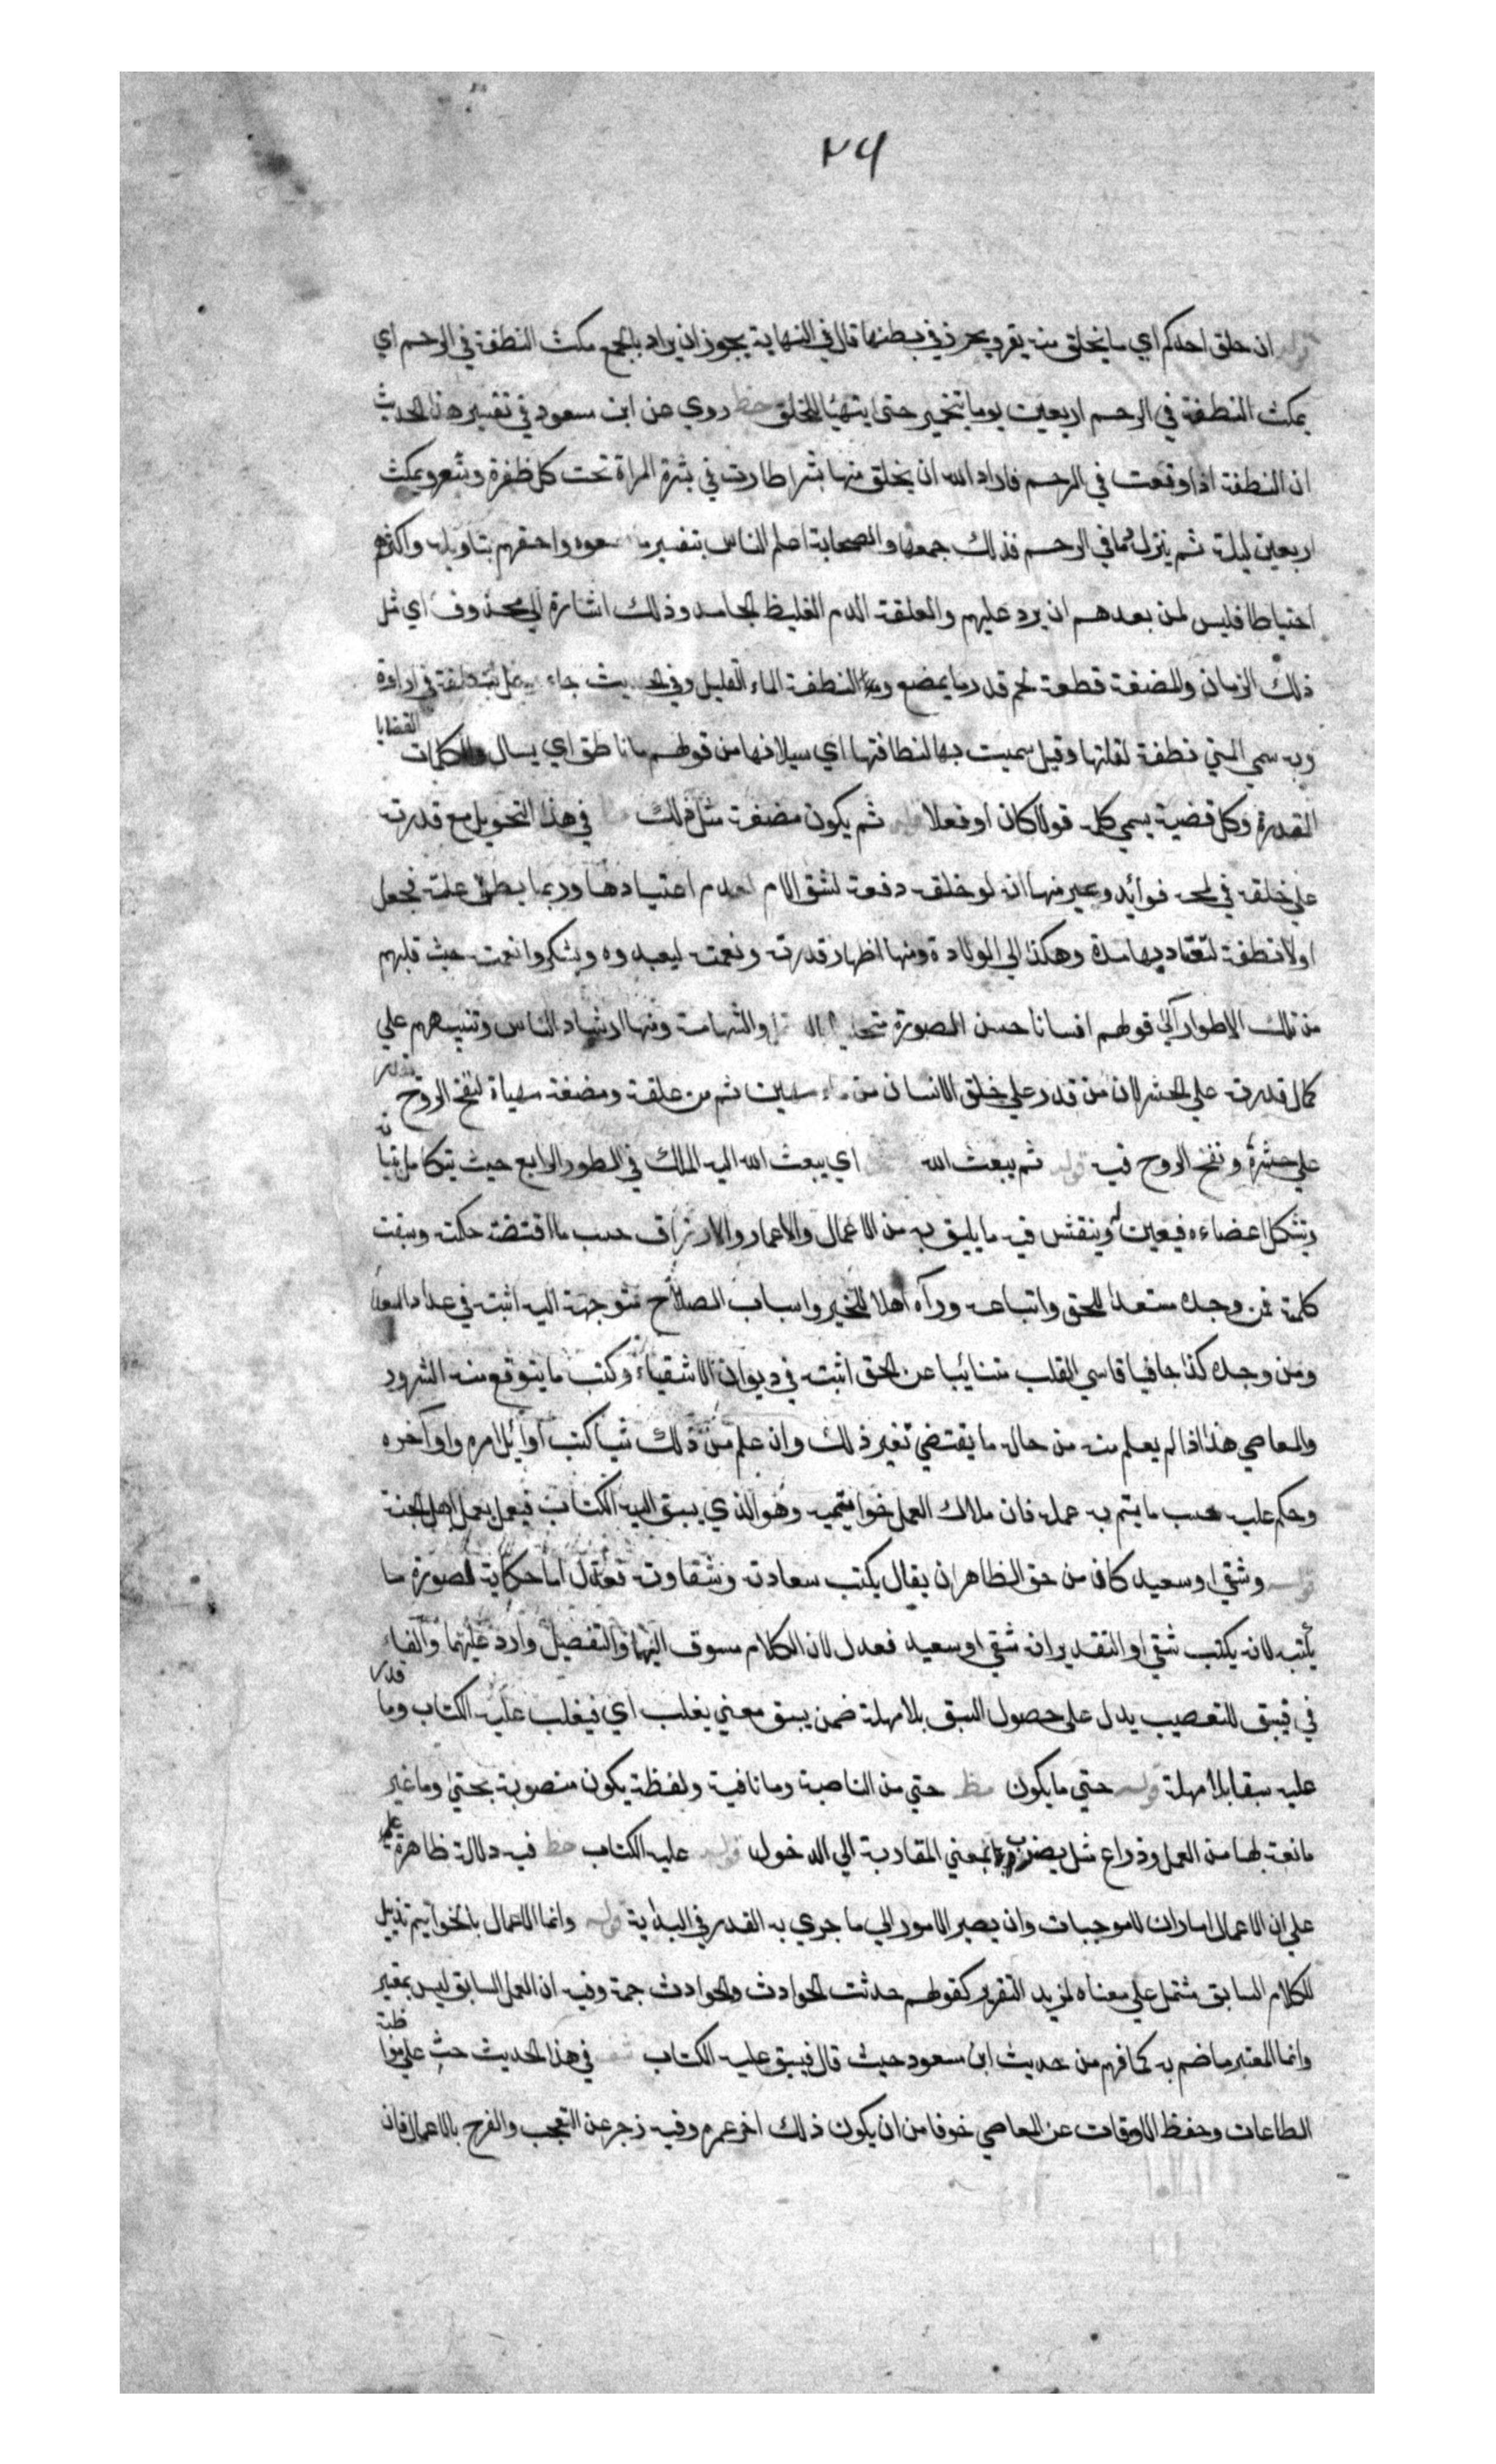 ٢٤
ان خلق احدكم اي ما يخلق منه يقر ويحرز في بطنها قال في النهاية يجوز ان يراد بالجمع مكث النطفة في الرحم اي
يمكث النطفة في الرحم اربعين يوما يتخمر حتى يتهيا للخلق خط روي عن ابن مسعود في تفسير هذا الحديث
ان النطفة اذا وقعت في الرحم فاراد الله ان يخلق منها بشرا طارت في بشرة المراة تحت كل ظفرة وشعر ويمكث
اربعين ليلة ثم ينزل دما في الرحم فذلك جمعها والصحابة اعلم الناس بتفسير ما سمعوه واحقهم بتاويله واكثرهم
احتياطا فليس لمن بعدهم ان يرد عليهم والعلقة الدم الغليظ الجامد وذلك اشارة الي محذوف اي مثل
ذلك الزمان والمضغة قطعة لحم قدر ما يمضغ النطفة الماء القليل وفي الحديث جاء رجل بنطفة في اداوة
وبه سمي المني نطفة لقلتها وقيل سميت بها لنطافتها اي سيلانها من قولهم ما ناطق اي يسال والكلمات القضايا
المقدرة وكل قضية يسمي كلمة قولا كان او فعلا قوله ثم يكون مضغة مثل ذلك في هذا التحويل مع قدرته
علي خلقه في لمحة فوائد وعبر منها انه لو خلقه دفعة لشق الام لعدم اعتيادها وربما يظن علة فجعل
اولا نطفة لتعتاد بها مدة وهكذا الي الولادة ومنها اظهار قدرته ونعمته ليعبدوه ويشكروا نعمته حيث قلبهم
من تلك الاطوار الي قولهم انسانا حسن الصورة والشهامة ومنها ارشاد الناس وتنبيههم علي
كمال قدرته علي الحشر لان من قدر علي خلق الانسان من ماء مهين ثم من علقة ومضغة مهياة لنفخ الروح يقدر
علي حشره ونفخ الروح فيه قوله ثم يبعث الله اي يبعث الله اليه الملك في الطور الرابع حيث يتكامل بنيانه
وتشكل اعضاءه فيعين وينقش فيه ما يليق به من الاعمال والاعمار والارزاق حسب ما اقتضته حكمته وسبقت
كلمته فمن وجده مستعدا للحق واتباعه ورآه اهلا للخير واسباب الصلاح متوجهة اليه اثبته في عداد السعداء
ومن وجده كذا جافيا قاسي القلب متنائيا عن الحق اثبته في ديوان الاشقياء وكتب ما يتوقع منه الشرور
والمعاصي هذا اذا لم يعلم منه من حاله ما يقتضي تغير ذلك وان علم من ذلك شيا كتب اوائل امره واواخره
وحكم عليه حسب ما يتم به عمله فان ملاك العمل خواتيمه وهو الذي يسبق اليه الكتاب فيعمل بعمل اهل الجنة
قوله وشقي او سعيد كان من حق الظاهر ان يقال يكتب سعادته وشقاوته فعدل اما حكاية لصورة ما
يكتب لانه يكتب شقي او التقدير انه شقي او سعيد فعدل لان الكلام مسوق اليهما والتفصيل وارد عليهما والفاء
في فيسبق للتعقيب يدل علي حصول السبق بلا مهلة ضمن يسبق معني يغلب اي فيغلب عليه الكتاب وما قدر
عليه سبقا بلا مهلة قوله حتي ما يكون مظ حتي من الناصبة وما نافية ولفظة يكون منصوبة بحتي وما غير
مانعة لها من العمل وذراع مثل يضرب بمعني المقاربة الي الدخول قوله عليه الكتاب خط فيه دلالة ظاهرة علي
علي ان الاعمال امارات لا موجبات وان يصير الامور الي ما جري به القدر في البداية قوله وانما الاعمال بالخواتيم تذييل
للكلام السابق مشتمل علي معناه لمزيد التقرير كقولهم حدثت الحوادث والحوادث جمة وفيه ان العمل السابق ليس بمعتبر
وانما المعتبر ما ختم به كما فهم من حديث ابن مسعود حيث قال فيسبق عليه الكتاب في هذا الحديث حث علي مواظبة
الطاعات وحفظ الاوقات عن المعاصي خوفا من ان يكون ذلك اخر عمره وفيه زجر عن التعجب والفرح بالاعمال فان